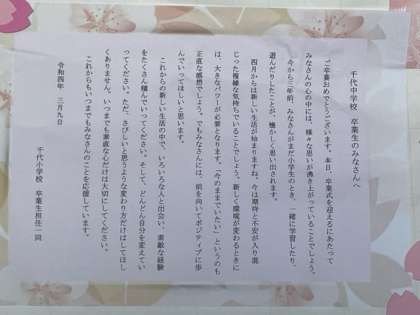 千代中学校　卒業生のみなさんへ
ご卒業おめでとうございます。本日、卒業式を迎えるにあたって
みなさんの心の中には、様々な思いが湧き上がっていることでしょう。
今から三年前、みなさんがまだ小学生のとき、一緒に学習したり、
遊んだりしたことが、懐かしく思い出されます。
四月からは新しい生活が始まりますね。今は期待と不安が入り混
じった複雑な気持ちでいることでしょう。新しく環境が変わるときに
は、大きなパワーが必要となります。「今のままでいたい」というのも
正直な感想でしょう。でもみなさんには、前を向いてポジティブに歩
んでいってほしいと思います。
これからの新しい生活の中で、いろいろな人と出会い、素敵な経験
をたくさん積んでいってください。そして、どんどん自分を変えてい
ってください。ただ、さびしいと思うような変わり方だけはしてほし
くありません。いつまでも素直な心だけは大切にしてください。
これからもいつまでもみなさんのことを応援しています。
令和四年　三月九日
千代小学校　卒業生担任一同